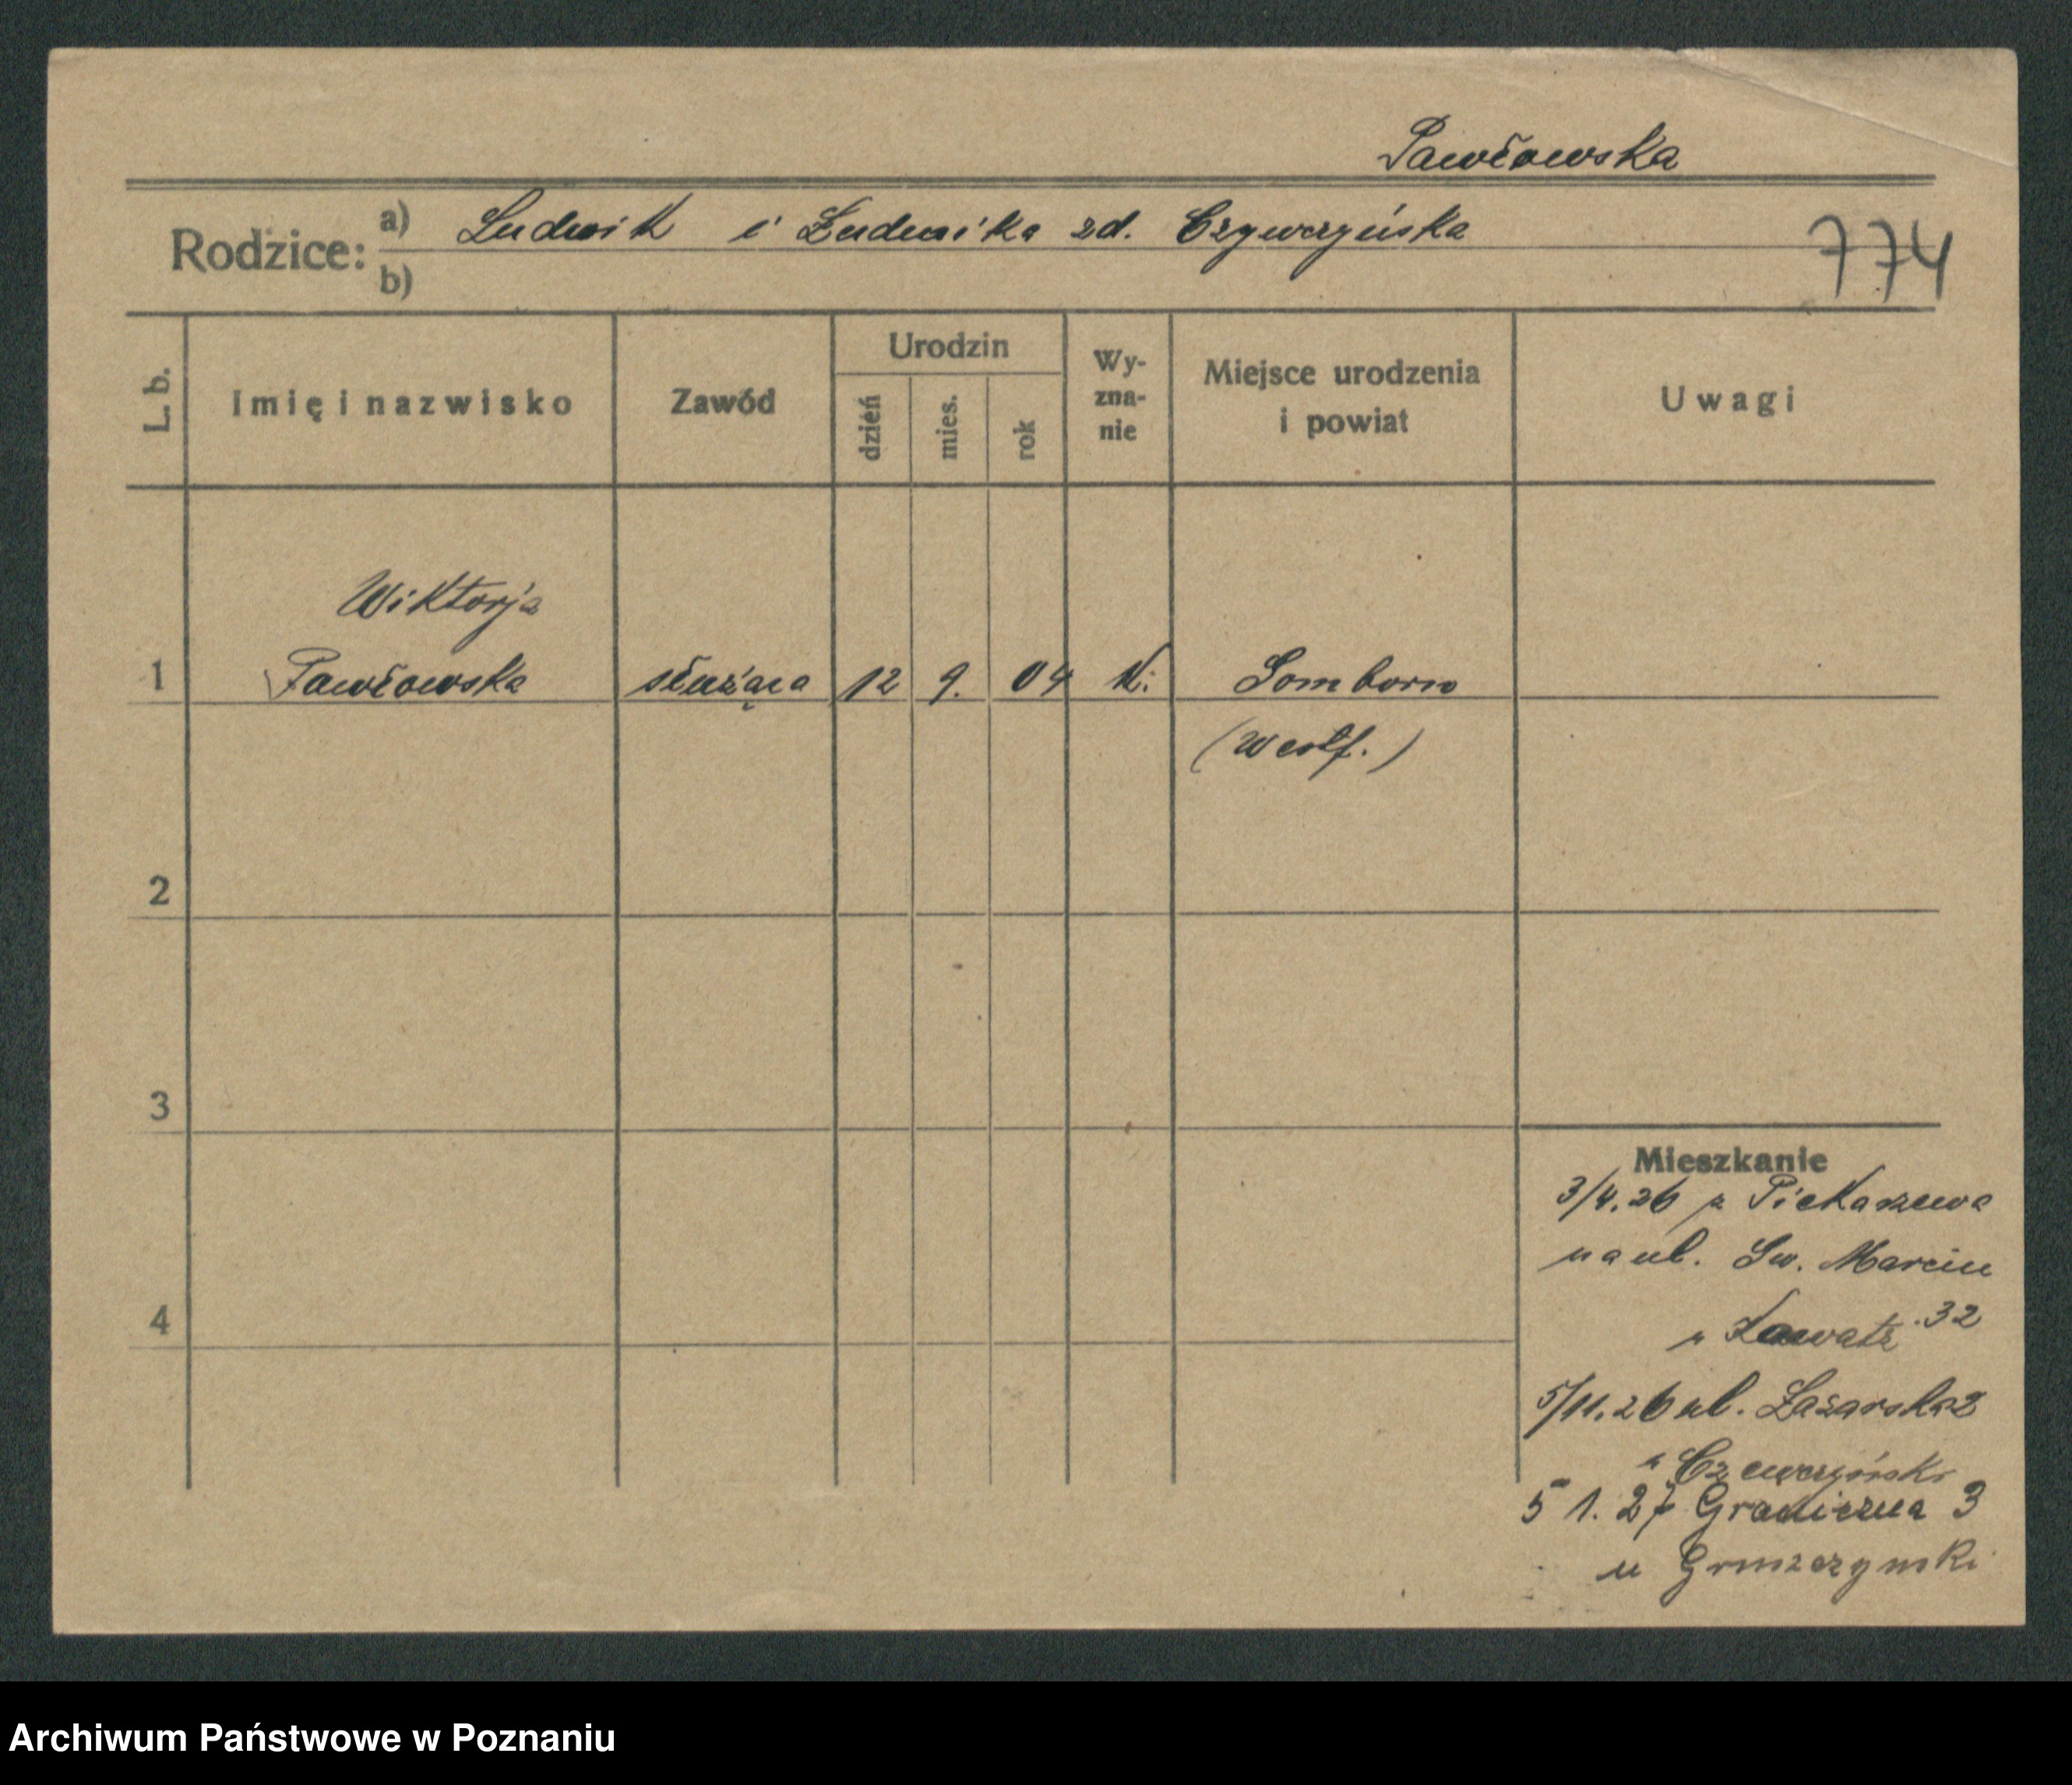 Pawłowska
Rodzice: a) Ludwik i Ludwika zd. Czywczyńska
b)
774
L. b.
Imię i nazwisko
Zawód
Urodzin
dzień
mies.
rok
Wy-
zna-
nie
Miejsce urodzenia
i powiat
Uwagi
Wiktorja
1 Pawłowska służąca 12 9. 04 k. Somborn
(Westf.)
2
3
4
Mieszkanie
3/4.26 z Piekarzewa
na ul. Św. Marcin
32
5/11.26 ul. Łazarska 2
" Czewczyński
5 1. 27 Graniczna 3
u Gruszczynski
Archiwum Państwowe w Poznaniu